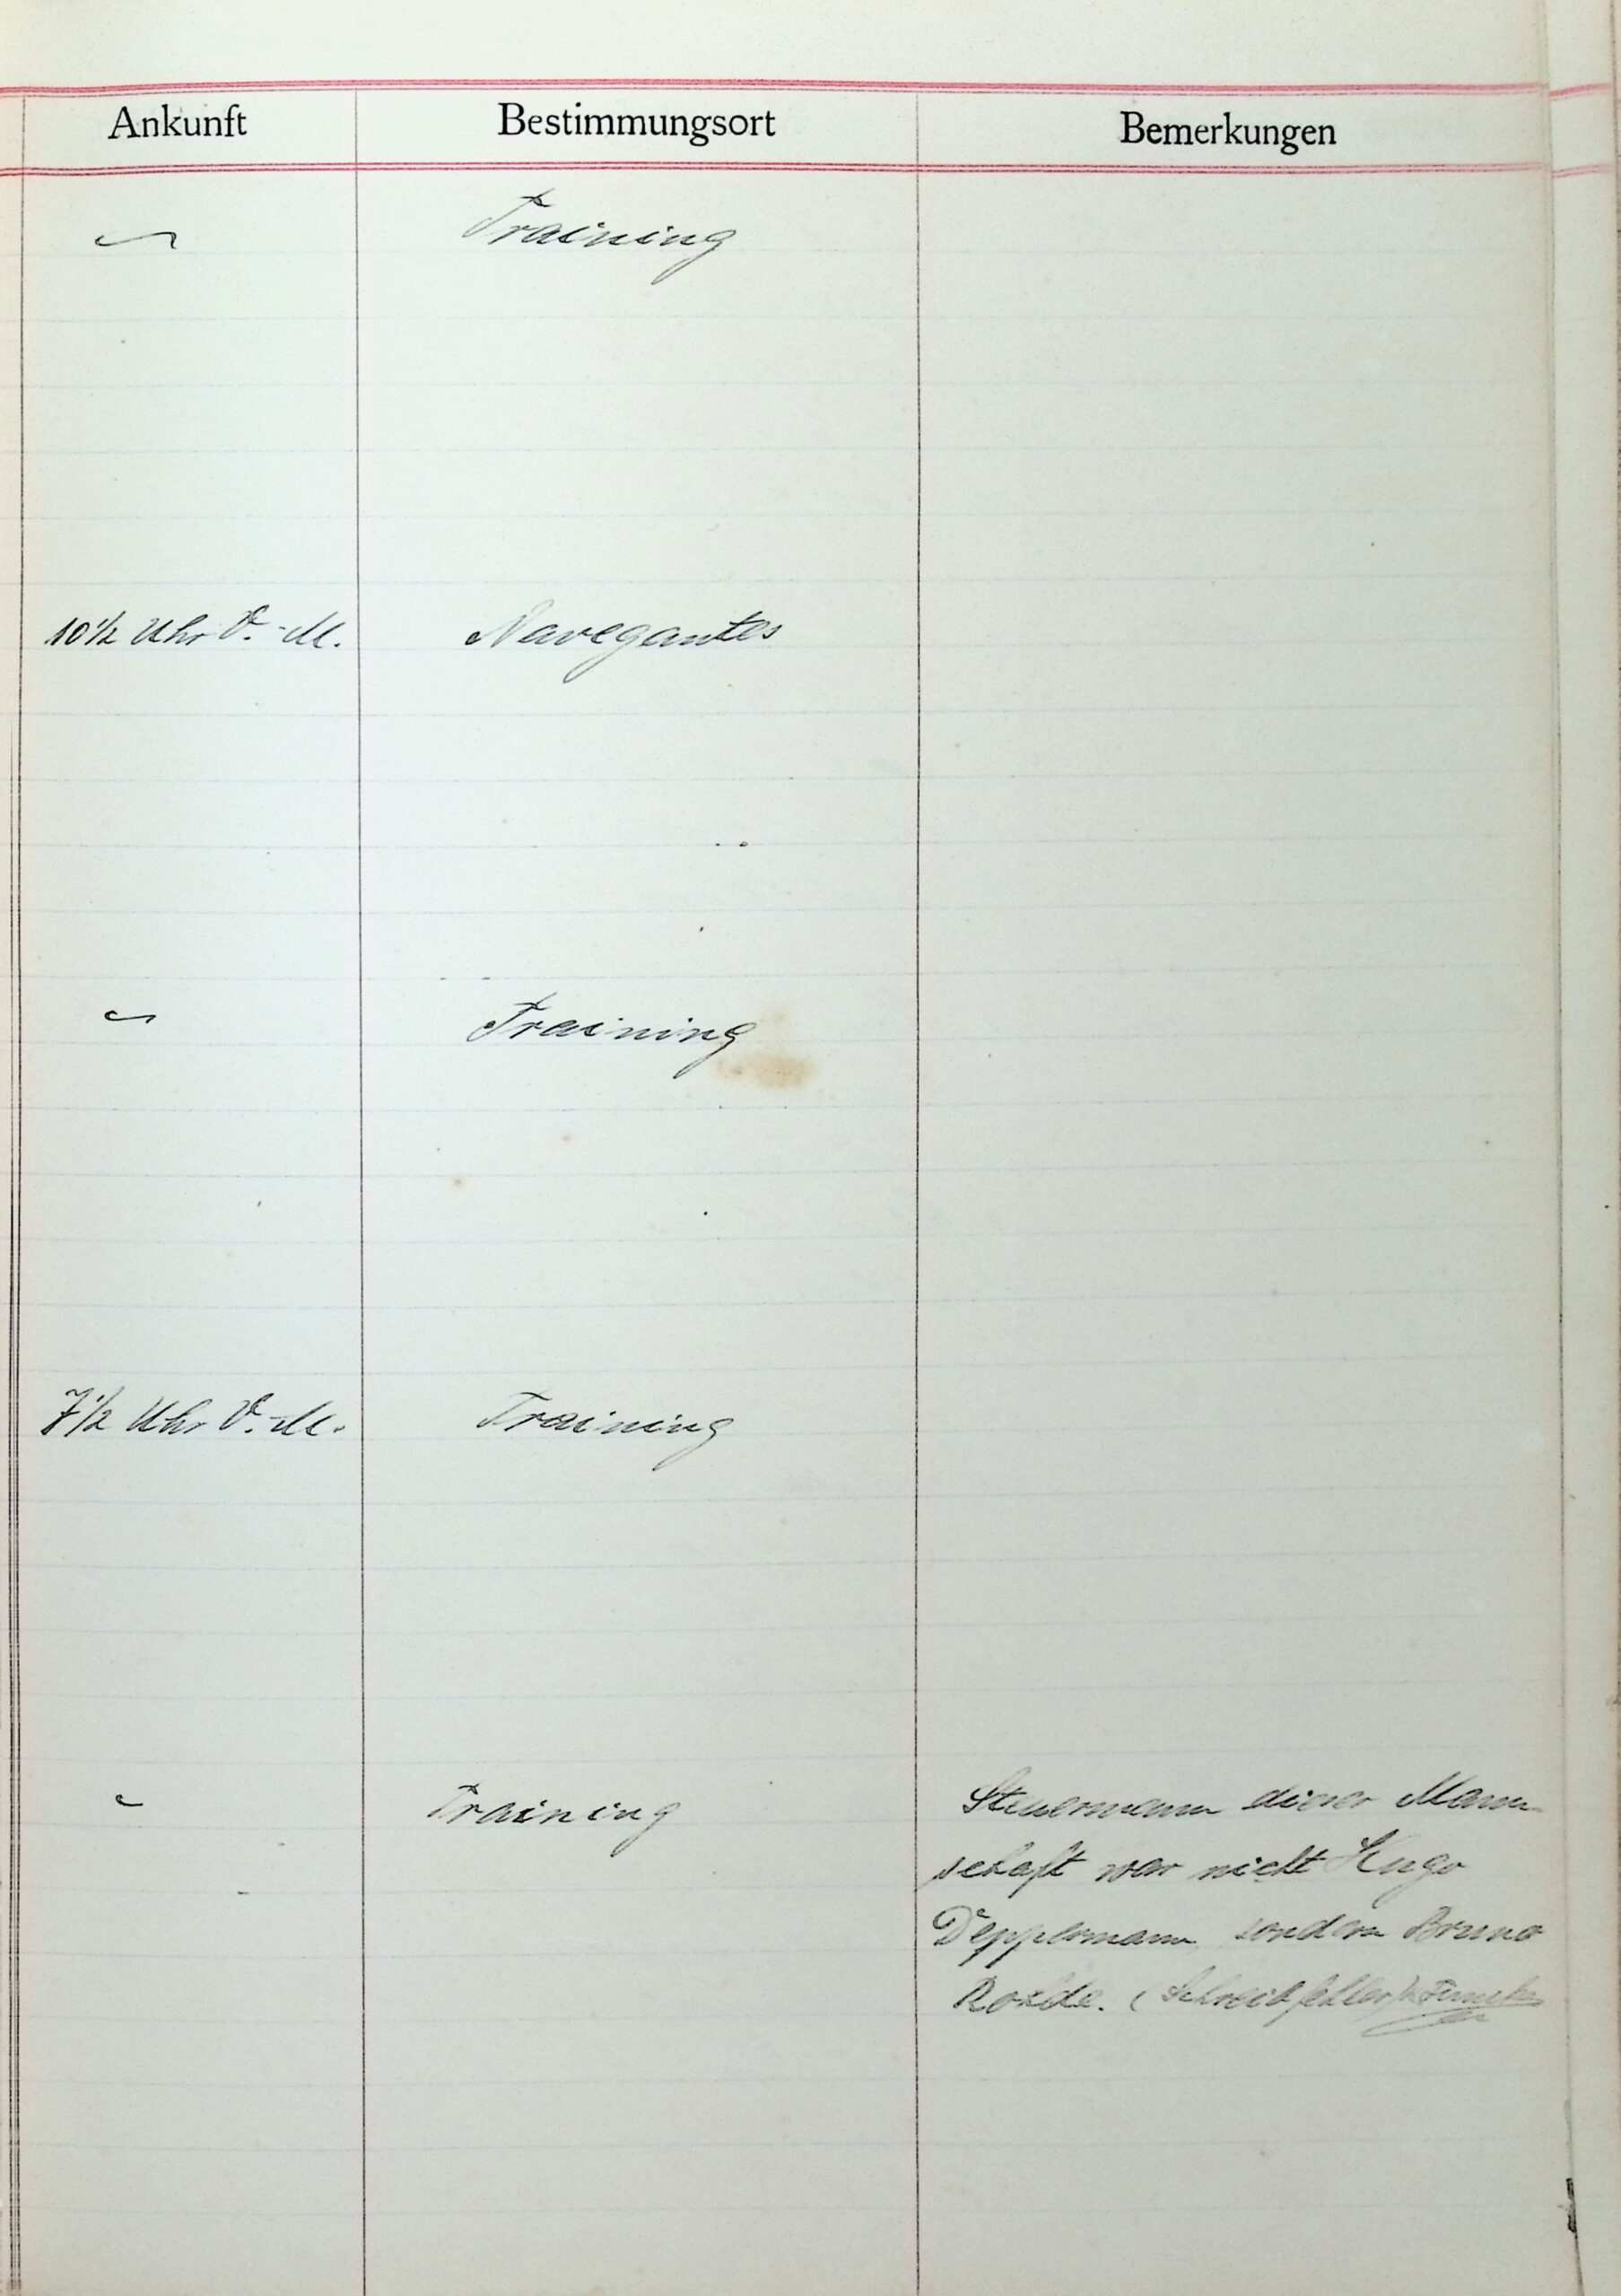 Ankunft Bestimmungsort Bemerkungen
Training
10½ Uhr V.-M. Navegantes
Training
7½ Uhr V.-M. Training
Training Steuermann dieser Mann-
schaft war nicht Hugo
Deppermann, sondern Bruno
Rohde. (Schreibfehler)